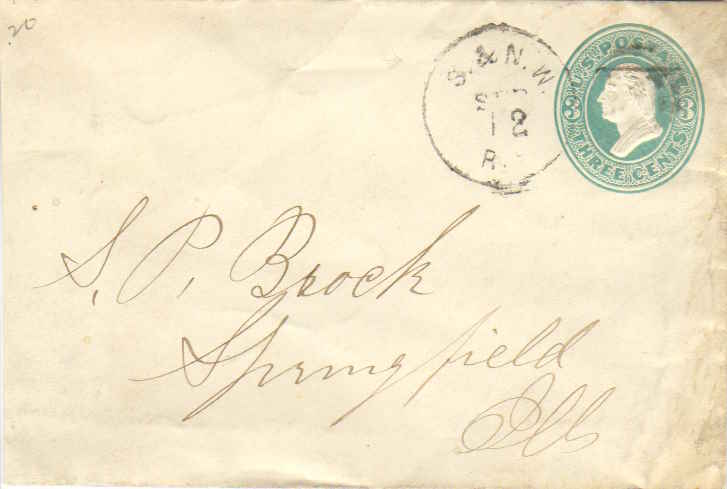 20
S. & N. W.
12
R.
U.S. POSTAGE
3 3
THREE CENTS
S. P. Brock
Springfield
Ills